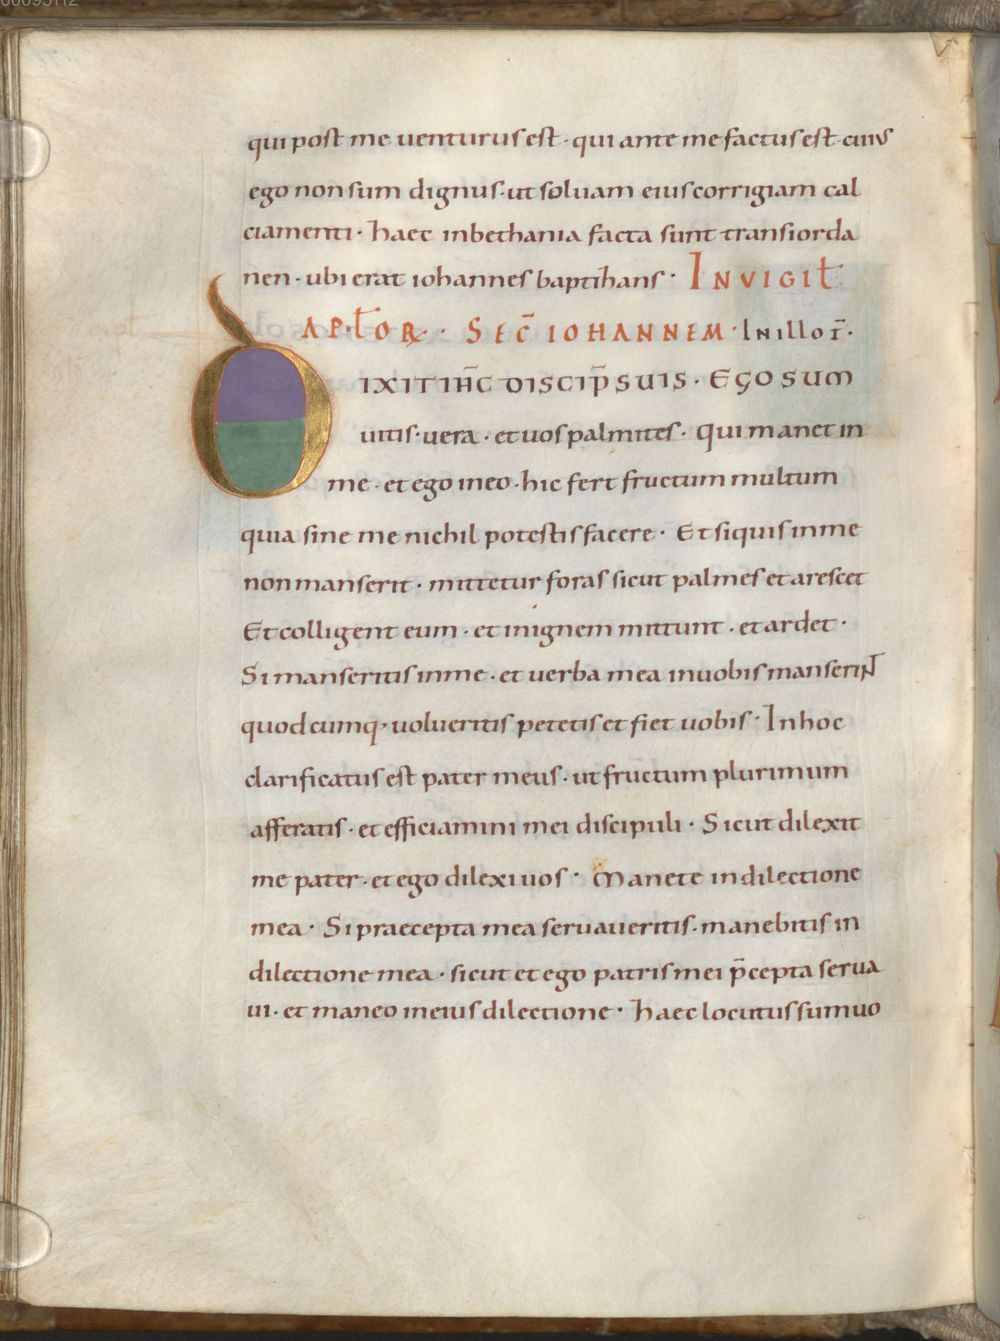 00095112
qui post me uenturus est · qui ante me factus est · cuius
ego non sum dignus · ut soluam eius corrigiam cal
ciamenti · haec in bethania facta sunt trans iorda
nen · ubi erat iohannes baptizans · IN VIGIŁ
APŁOR · SEC̄ IOHANNEM · In illo t̄ ·
DIXIT IH̄C DISCIP̄ SUIS · EGO SUM
uitis · uera · et uos palmites · Qui manet in
me · et ego in eo · hic fert fructum multum
quia sine me nichil potestis facere · Et si quis in me
non manserit · mittetur foras sicut palmes et arescet
Et colligent eum · et in ignem mittunt · et ardet ·
Si manseritis in me · et uerba mea in uobis manserint
quodcumq· uolueritis petetis et fiet uobis · In hoc
clarificatus est pater meus · ut fructum plurimum
afferatis · et efficiamini mei discipuli · Sicut dilexit
me pater · et ego dilexi uos · Manete in dilectione
mea · Si praecepta mea seruaueritis · manebitis in
dilectione mea · sicut et ego patris mei p̄cepta serua
ui · et maneo in eius dilectione · haec locutus sum uo